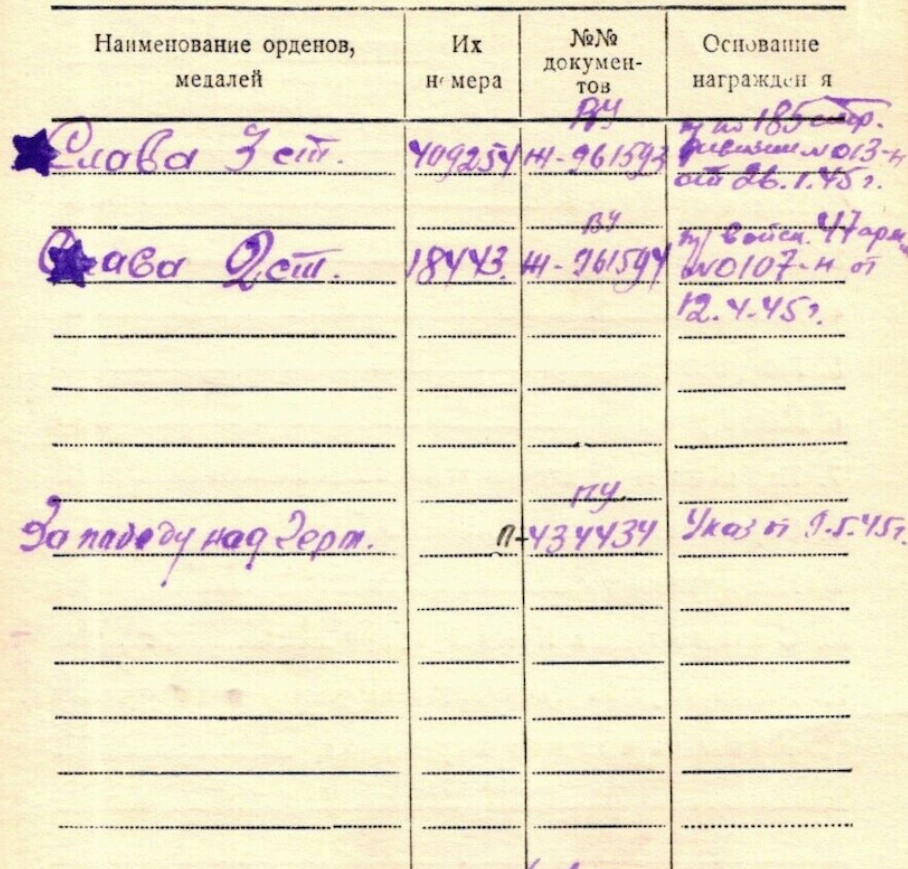 Наименование орденов, медалей
Их номера
№№ документов
Основание награждения
Слава 3 ст.
409254
ВУ
Ж-961593
пр по 185 стр.
дивизии №013-н
от 26.1.45г.
Слава 2 ст.
18443.
ВУ
Ж-961594
пр войск. 47 арм.
№0107-н от
12.4.45г.
За победу над Герм.
ПУ
П-434434
Указ от 9.5.45г.